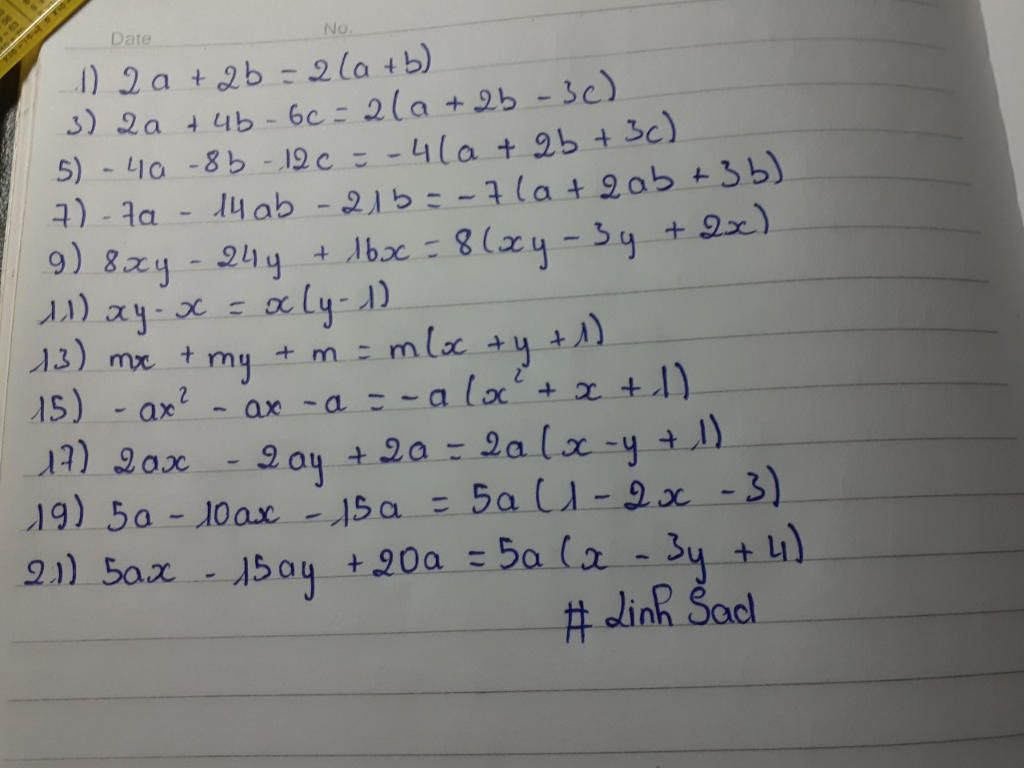 Date No.
1) 2a + 2b = 2(a + b)
3) 2a + 4b - 6c = 2(a + 2b - 3c)
5) - 4a - 8b - 12c = - 4(a + 2b + 3c)
7) - 7a - 14ab - 21b = - 7(a + 2ab + 3b)
9) 8xy - 24y + 16x = 8(xy - 3y + 2x)
11) xy - x = x(y - 1)
13) mx + my + m = m(x + y + 1)
15) - ax² - ax - a = - a(x² + x + 1)
17) 2ax - 2ay + 2a = 2a(x - y + 1)
19) 5a - 10ax - 15a = 5a(1 - 2x - 3)
21) 5ax - 15ay + 20a = 5a(x - 3y + 4)
# Linh Sad